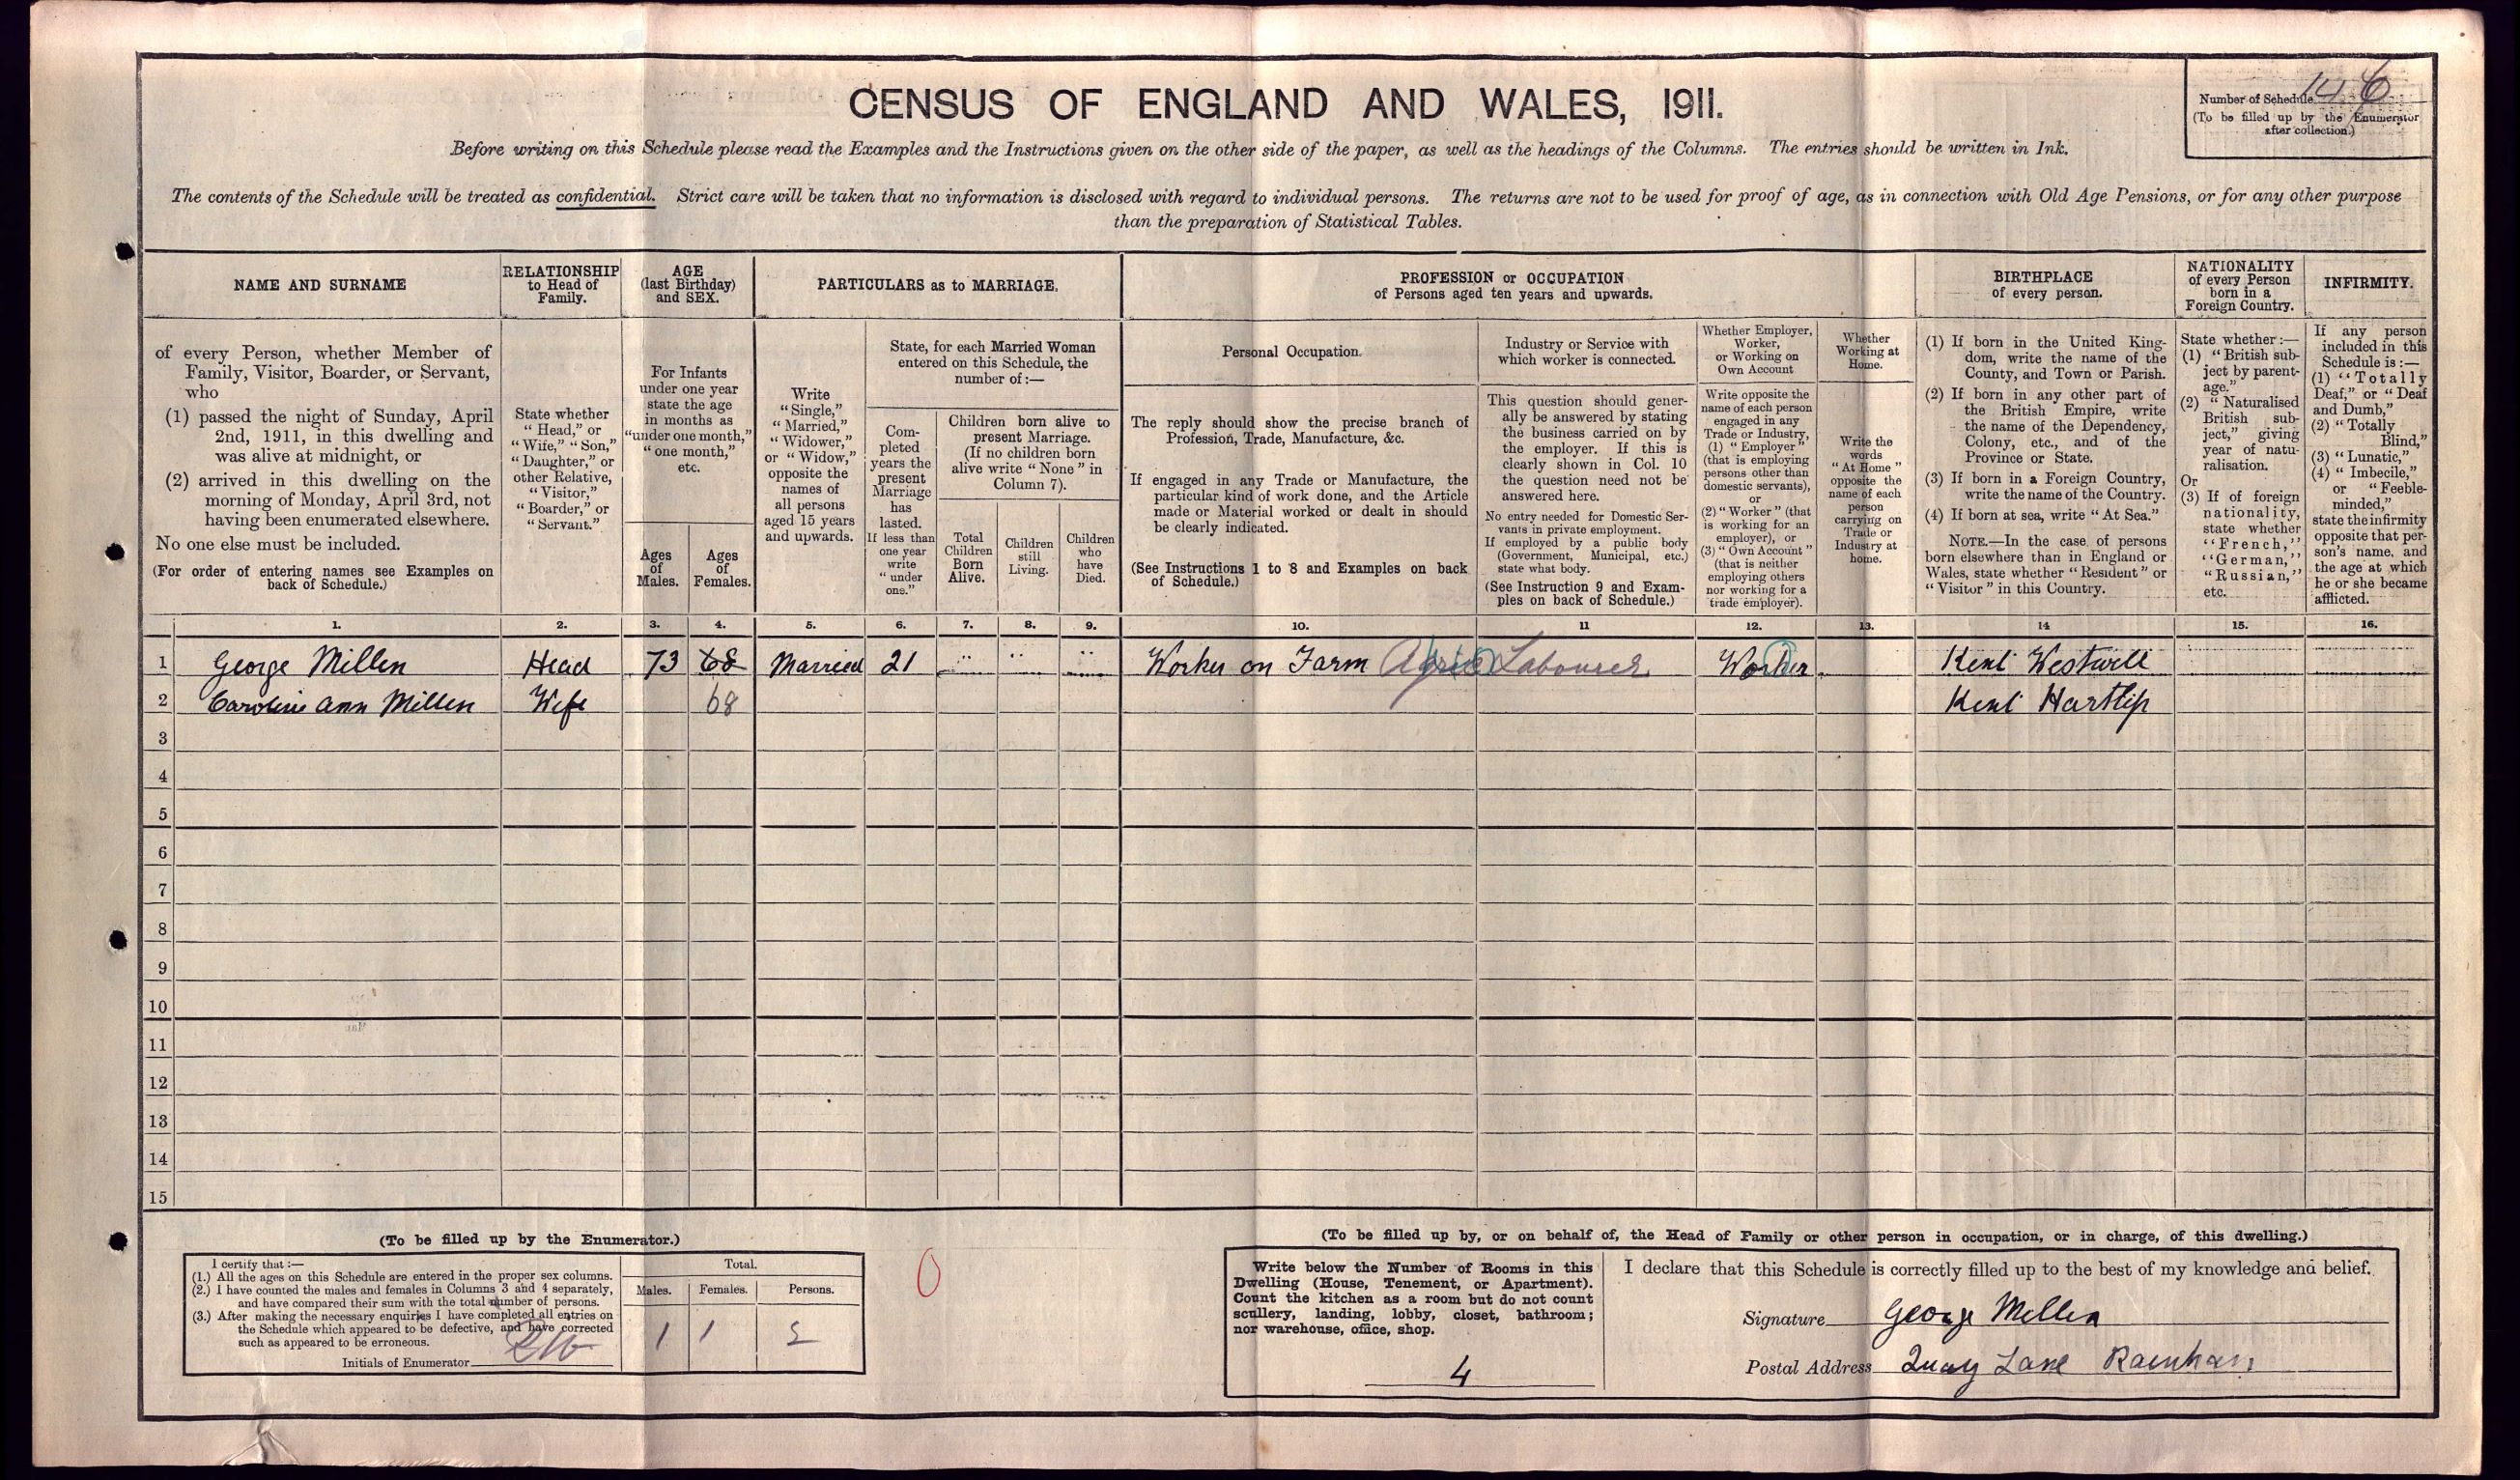 CENSUS OF ENGLAND AND WALES, 1911.
Number of Schedule 146
(To be filled up by the Enumerator
after collection.)
Before writing on this Schedule please read the Examples and the Instructions given on the other side of the paper, as well as the headings of the Columns. The entries should be written in Ink.
The contents of the Schedule will be treated as confidential. Strict care will be taken that no information is disclosed with regard to individual persons. The returns are not to be used for proof of age, as in connection with Old Age Pensions, or for any other purpose
than the preparation of Statistical Tables.
NAME AND SURNAME
of every Person, whether Member of
Family, Visitor, Boarder, or Servant,
who
(1) passed the night of Sunday, April
2nd, 1911, in this dwelling and
was alive at midnight, or
(2) arrived in this dwelling on the
morning of Monday, April 3rd, not
having been enumerated elsewhere.
No one else must be included.
(For order of entering names see Examples on
back of Schedule.)
RELATIONSHIP
to Head of
Family.
State whether
"Head," or
"Wife," "Son,"
"Daughter," or
other Relative,
"Visitor,"
"Boarder," or
"Servant."
AGE
(last Birthday)
and SEX.
For Infants
under one year
state the age
in months as
"under one month,"
"one month,"
etc.
Ages
of
Males.
Ages
of
Females.
PARTICULARS as to MARRIAGE.
Write
"Single,"
"Married,"
"Widower,"
or "Widow,"
opposite the
names of
all persons
aged 15 years
and upwards.
State, for each Married Woman
entered on this Schedule, the
number of:—
Com-
pleted
years the
present
Marriage
has
lasted.
If less than
one year
write
"under
one."
Children born alive to
present Marriage.
(If no children born
alive write "None" in
Column 7).
Total
Children
Born
Alive.
Children
still
Living.
Children
who
have
Died.
PROFESSION or OCCUPATION
of Persons aged ten years and upwards.
Personal Occupation.
The reply should show the precise branch of
Profession, Trade, Manufacture, &c.
If engaged in any Trade or Manufacture, the
particular kind of work done, and the Article
made or Material worked or dealt in should
be clearly indicated.
(See Instructions 1 to 8 and Examples on back
of Schedule.)
Industry or Service with
which worker is connected.
This question should gener-
ally be answered by stating
the business carried on by
the employer. If this is
clearly shown in Col. 10
the question need not be
answered here.
No entry needed for Domestic Ser-
vants in private employment.
If employed by a public body
(Government, Municipal, etc.)
state what body.
(See Instruction 9 and Exam-
ples on back of Schedule.)
Whether Employer,
Worker,
or Working on
Own Account
Write opposite the
name of each person
engaged in any
Trade or Industry,
(1) "Employer"
(that is employing
persons other than
domestic servants),
or
(2) "Worker" (that
is working for an
employer), or
(3) "Own Account"
(that is neither
employing others
nor working for a
trade employer).
Whether
Working at
Home.
Write the
words
"At Home"
opposite the
name of each
person
carrying on
Trade or
Industry at
home.
BIRTHPLACE
of every person.
(1) If born in the United King-
dom, write the name of the
County, and Town or Parish.
(2) If born in any other part of
the British Empire, write
the name of the Dependency,
Colony, etc., and of the
Province or State.
(3) If born in a Foreign Country,
write the name of the Country.
(4) If born at sea, write "At Sea."
NOTE.—In the case of persons
born elsewhere than in England or
Wales, state whether "Resident" or
"Visitor" in this Country.
NATIONALITY
of every Person
born in a
Foreign Country.
State whether:—
(1) "British sub-
ject by parent-
age."
(2) "Naturalised
British sub-
ject," giving
year of natu-
ralisation.
Or
(3) If of foreign
nationality,
state whether
"French,"
"German,"
"Russian,"
etc.
INFIRMITY.
If any person
included in this
Schedule is:—
(1) "Totally
Deaf," or "Deaf
and Dumb,"
(2) "Totally
Blind,"
(3) "Lunatic,"
(4) "Imbecile,"
or "Feeble-
minded,"
state the infirmity
opposite that per-
son's name, and
the age at which
he or she became
afflicted.
1. 2. 3. 4. 5. 6. 7. 8. 9. 10. 11 12. 13. 14 15. 16.
1 George Millen Head 73 68 Married 21 " " " Worker on Farm Agric Labourer Worker Kent Westwell
2 Caroline Ann Millen Wife 68 Kent Hartlip
3
4
5
6
7
8
9
10
11
12
13
14
15
(To be filled up by the Enumerator.)
I certify that:—
(1.) All the ages on this Schedule are entered in the proper sex columns.
(2.) I have counted the males and females in Columns 3 and 4 separately,
and have compared their sum with the total number of persons.
(3.) After making the necessary enquiries I have completed all entries on
the Schedule which appeared to be defective, and have corrected
such as appeared to be erroneous.
Initials of Enumerator
Total.
Males. Females. Persons.
1 1 2
0
(To be filled up by, or on behalf of, the Head of Family or other person in occupation, or in charge, of this dwelling.)
Write below the Number of Rooms in this
Dwelling (House, Tenement, or Apartment).
Count the kitchen as a room but do not count
scullery, landing, lobby, closet, bathroom;
nor warehouse, office, shop.
4
I declare that this Schedule is correctly filled up to the best of my knowledge and belief.
Signature George Millen
Postal Address Quay Lane Rainham